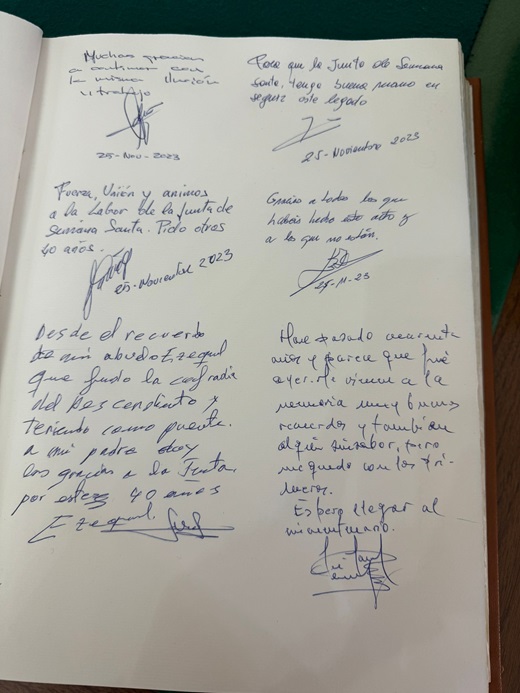 Muchas gracias
a continuar con
la misma ilusión
y trabajo
25-Nov-2023
Para que la Junta de Semana
Santa, tenga buena mano en
seguir este legado
25-Noviembre 2023
Fuerza, Unión y animos
a la labor de la Junta de
Semana Santa. Pido otros
40 años.
25-Noviembre 2023
Gracias a todos los que
habeis hecho esto alto y
a los que no están.
25-11-23
Desde el recuerdo
de mi abuelo Ezequiel
que fundo la cofradia
del Descendiento y
teniendo como puente
a mi padre doy
las gracias a la Junta
por estos 40 años
Ezequiel
Han pasado cuarenta
años y parece que fué
ayer. Me vienen a la
memoria muy buenos
recuerdos y también
algún sinsabor, pero
me quedo con los pri-
meros.
Espero llegar al